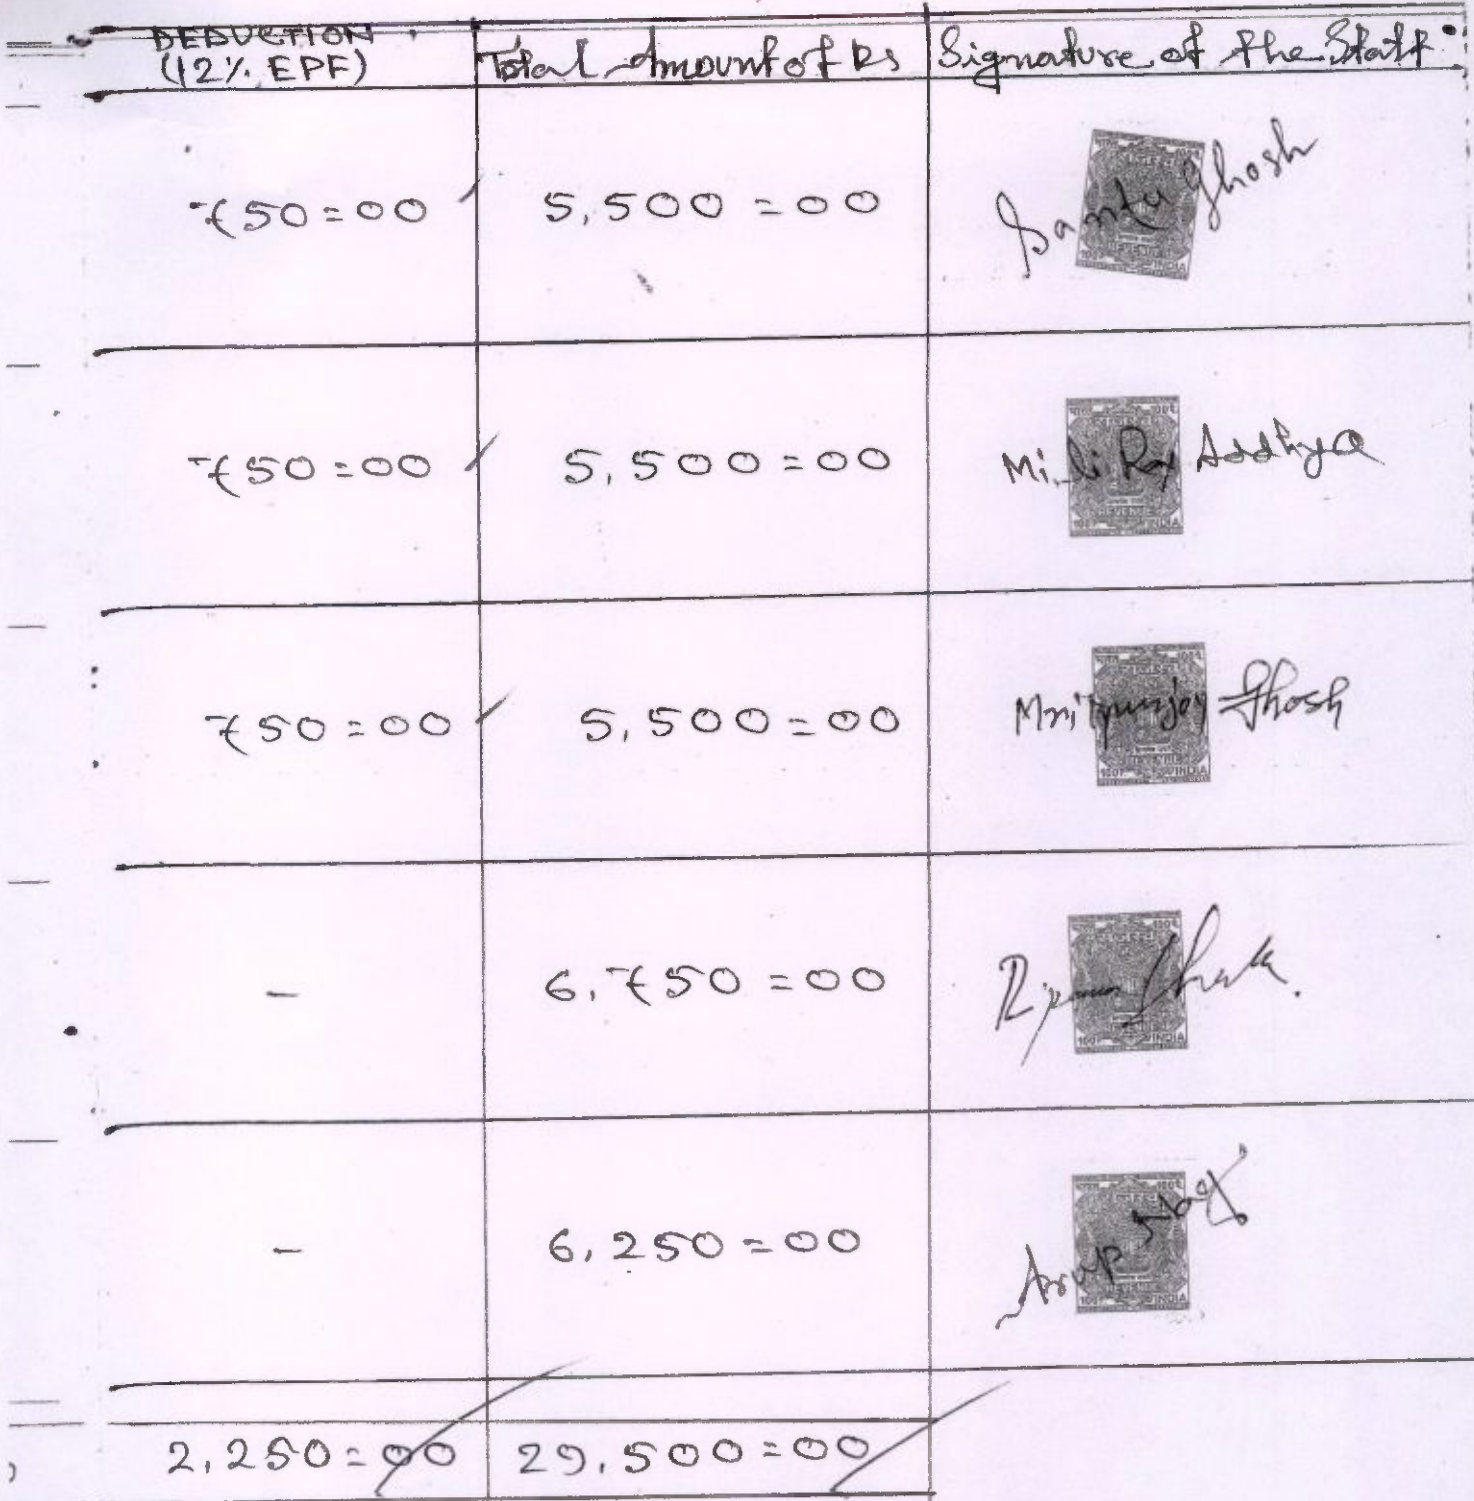 DEDUCTION Total Amount of Rs Signature of the Staff
(12% EPF)
750=00 5,500=00 Santu Ghosh
750=00 5,500=00 Mili Roy Addhya
750=00 5,500=00 Mrityunjoy Ghosh
- 6,750=00
- 6,250=00 Arup Nag
2,250=00 29,500=00